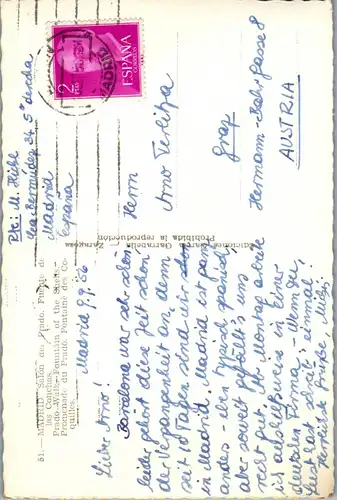 Rte: M. Hiebl
Cea Bermúdez 34 5º derecha
Madrid
España
2
PTAS
ESPAÑA
CORREOS
MADRID
Herrn
Arno
Graz
Hermann-Bahr-gasse 8
AUSTRIA
Ediciones García Garrabella
Prohibida la reproducción
Zaragoza
51. MADRID Salón del Prado. Fuente de
las Conchas.
Prado-Walk-Fountain of the Shells.
Promenade du Prado. Fontaine des Co-
quilles.
Madrid 9.9.56
Lieber Arno!
Barcelona war sehr schön
leider gehört diese Zeit schon
der Vergangenheit an, denn
seit 10 Tagen sind wir schon
in Madrid. Madrid ist ganz
anders als typisch spanisch,
aber soweit gefällt's uns
recht gut. Ab Montag arbeite
ich aushilfsweise in einer
deutschen Firma. Wenn Du
Zeit hast, schreib' einmal,
Herzliche Grüße